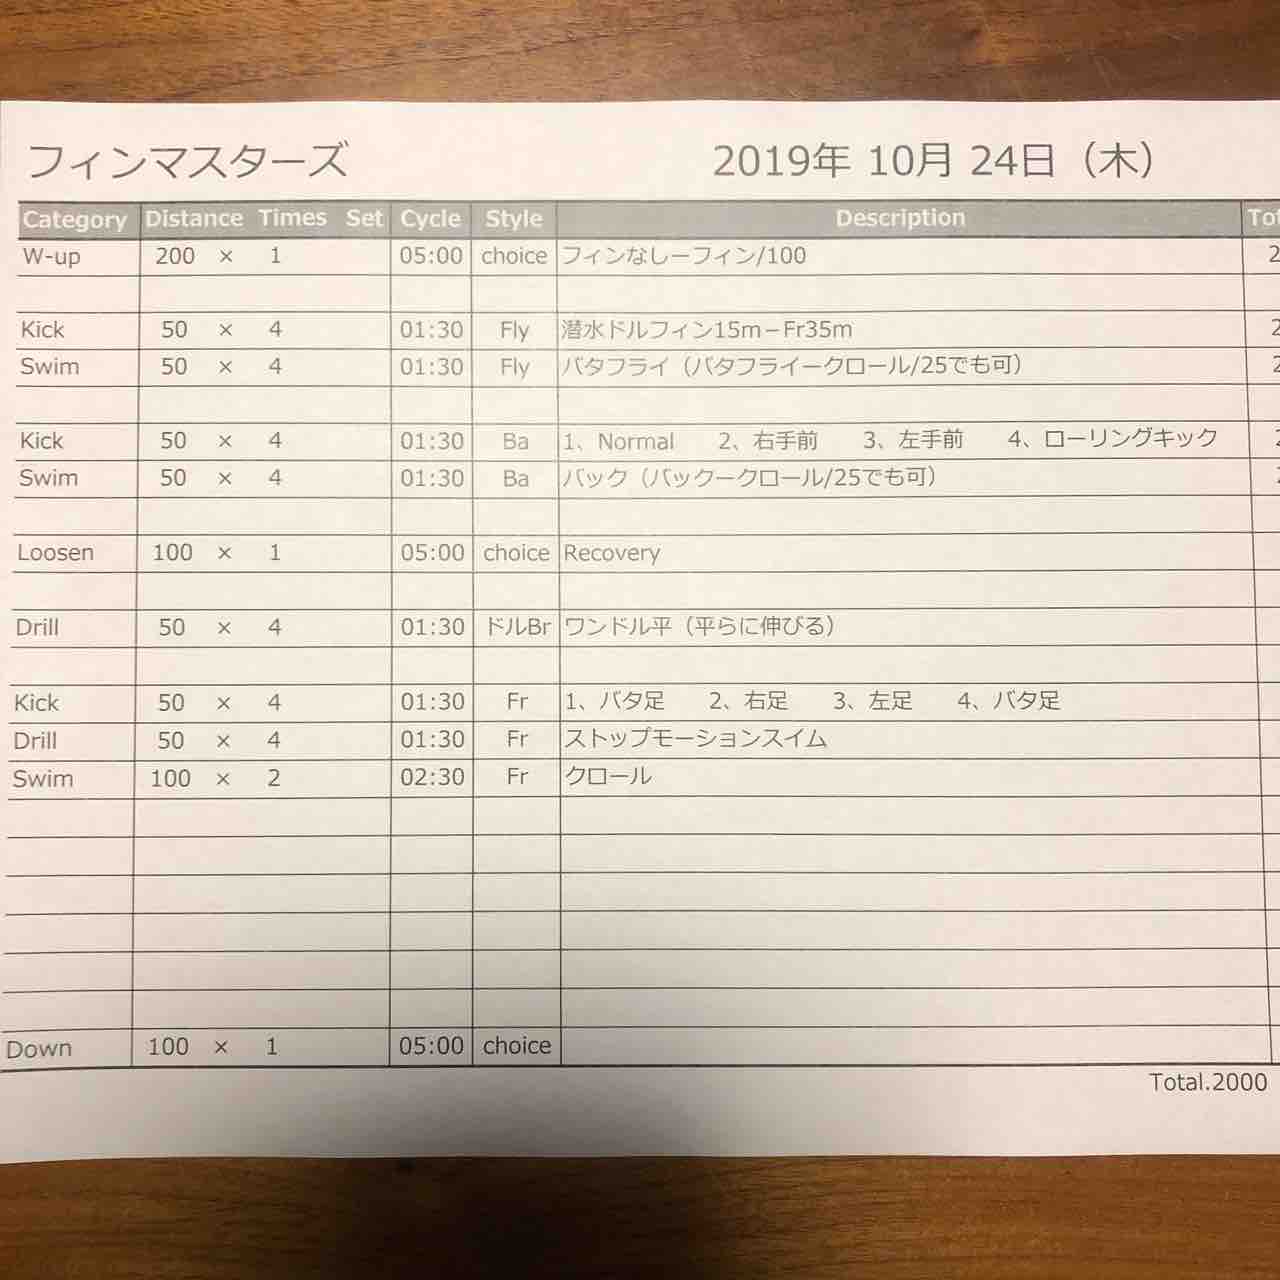 フィンマスターズ 2019年 10月 24日（木）
Category Distance Times Set Cycle Style Description
W-up 200 × 1 05:00 choice フィンなしーフィン/100
Kick 50 × 4 01:30 Fly 潜水ドルフィン15m－Fr35m
Swim 50 × 4 01:30 Fly バタフライ（バタフライークロール/25でも可）
Kick 50 × 4 01:30 Ba 1、Normal 2、右手前 3、左手前 4、ローリングキック
Swim 50 × 4 01:30 Ba バック（バックークロール/25でも可）
Loosen 100 × 1 05:00 choice Recovery
Drill 50 × 4 01:30 ドルBr ワンドル平（平らに伸びる）
Kick 50 × 4 01:30 Fr 1、バタ足 2、右足 3、左足 4、バタ足
Drill 50 × 4 01:30 Fr ストップモーションスイム
Swim 100 × 2 02:30 Fr クロール
Down 100 × 1 05:00 choice
Total.2000